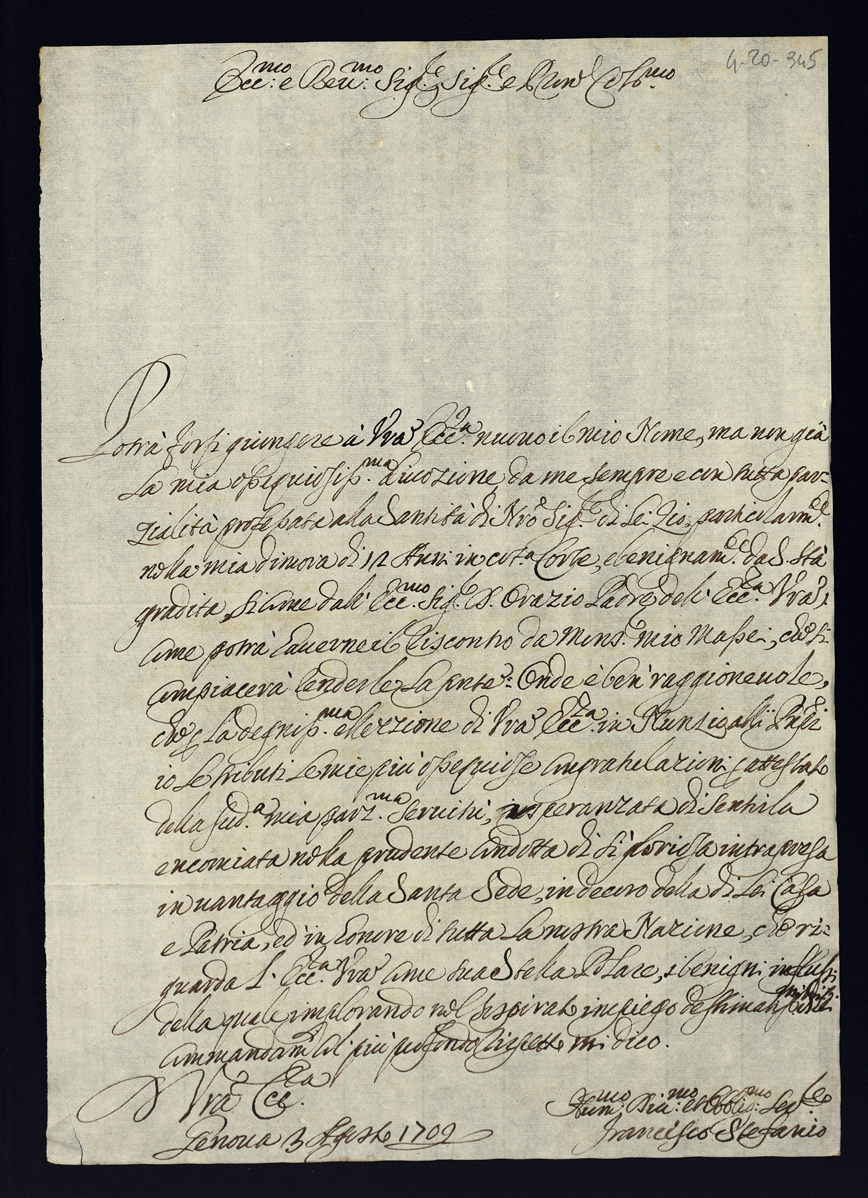 4-20-345
Ecc:mo e Reu:mo Sig:r Sig:r e Pron Col:mo
Potrà forsi giungere à Vra Ecc:za nuouo il mio Nome, ma non già
la mia ossequiosiss:ma diuozione da me sempre e con tutta par-
zialità professata alla Santità di Nro Sig:re di Lei Zio, particolarm:te
nella mia dimora di 12 Anni in cot:a Corte, e benignam:te da S. Stà
gradita, si come dall' Ecc:mo Sig:r D. Orazio Padre dell' Ecc:za Vra,
come potrà hauerne il riscontro da Mons:r mio Massei, che si
compiacerà renderle la pnte: Onde è ben raggioneuole,
che p la degniss:ma ellezzione di Vra Ecc:za in Nunzio alli
io le tributi le mie più ossequiose congratulazioni p attestato
della sud:a mia parz:ma seruitù, speranzata di sentirla
encomiata nella prudente condotta di sì gloriosa intrapresa
in uantaggio della Santa Sede, in decoro della di Lei Casa
e Patria, ed in honore di tutta la nostra Nazione, che ri-
guarda l' Ecc:za Vra come sua Stella Polare, i benigni influssi
della quale implorando nel sospirato impiego de stimatiss:mi di Lei
commandam:ti col più profondo rispetto mi dico.
D Vra Ecc:za
Genoua 3 Agosto 1709
Hum:mo Diu:mo et Obblig:mo Ser:re
Francesco Stefanio